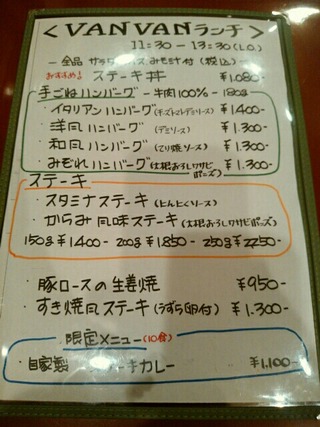 ＜VANVANランチ＞
11:30 - 13:30 (L.O.)
- 全品 サラダ みそ汁付 (税込) -
おすすめ ステーキ丼 ¥1.080-
手ごねハンバーグ - 牛肉100% - 180g
・イタリアンハンバーグ (チーズトマトデミソース) ¥1400-
・洋風ハンバーグ (デミソース) ¥1.300-
・和風ハンバーグ (てり焼ソース) ¥1.300-
・みぞれハンバーグ (大根おろしワサビポンズ) ¥1.300-
ステーキ
・スタミナステーキ (にんにくソース)
・からみ風味ステーキ (大根おろしワサビポンズ)
150g ¥1400- 200g ¥1.850- 250g ¥2250-
・豚ロースの生姜焼 ¥950-
・すき焼風ステーキ (うずら卵付) ¥1.300-
限定メニュー (10食)
・自家製 ーキカレー ¥1.100-